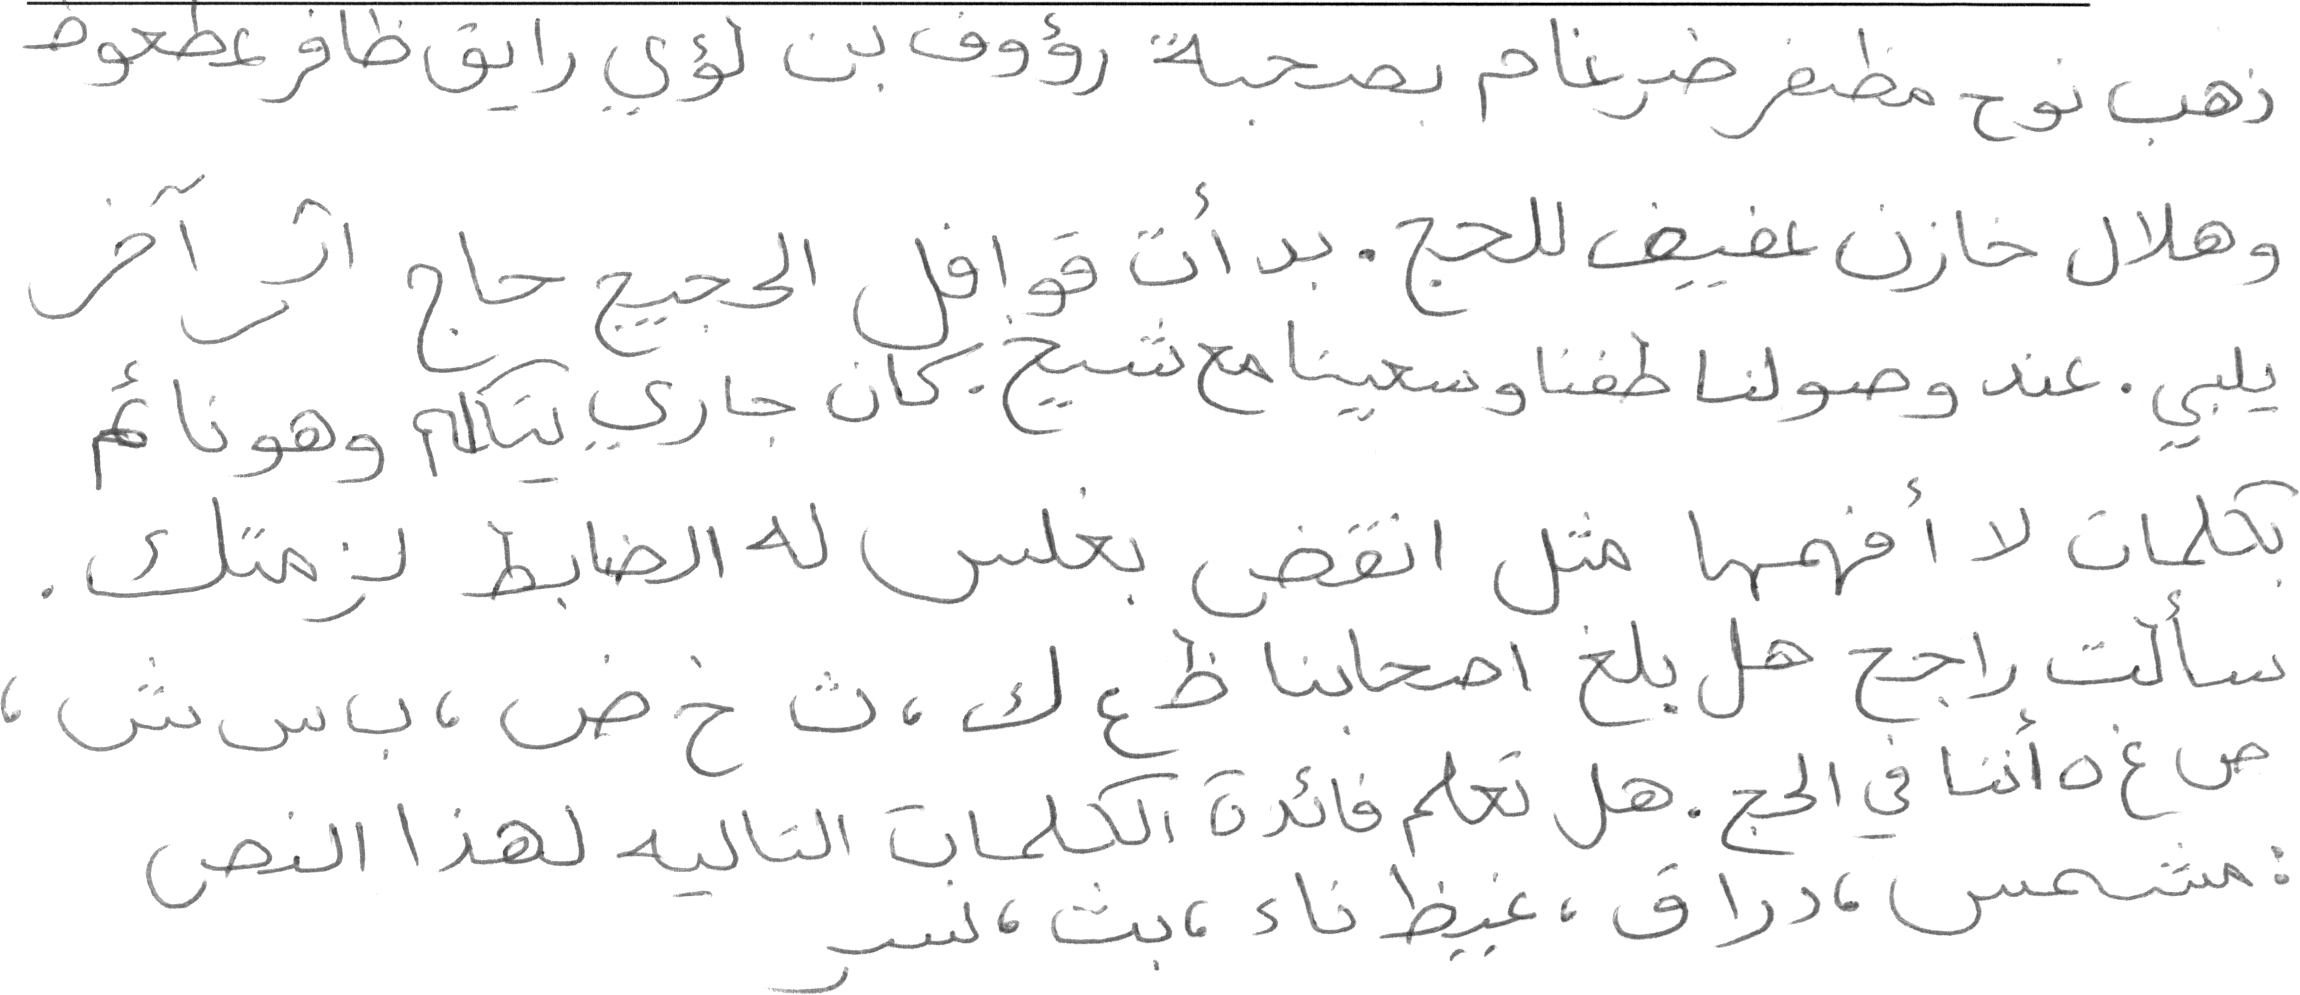 ذهب نوح مظفر ضرغام بصحبة رؤوف بن لؤي رايق ظافر عطعوط
وهلال خازن عفيف للحج. بدأت قوافل الحجيج حاج اثر آخر
يلبي. عند وصولنا طفنا وسعينا مع شيخ. كان جاري يتكلم وهو نائم
بكلمات لا أفهمها مثل انقض بغلس له الضابط لزمتك.
سألت راجح هل بلغ اصحابنا ظ ع ك، ث خ ض، ب س ش،
ص غ ه أننا في الحج. هل تعلم فائدة الكلمات التاليه لهذا النص
: مشمس، دراق، غييظ ناء، بث، نسر